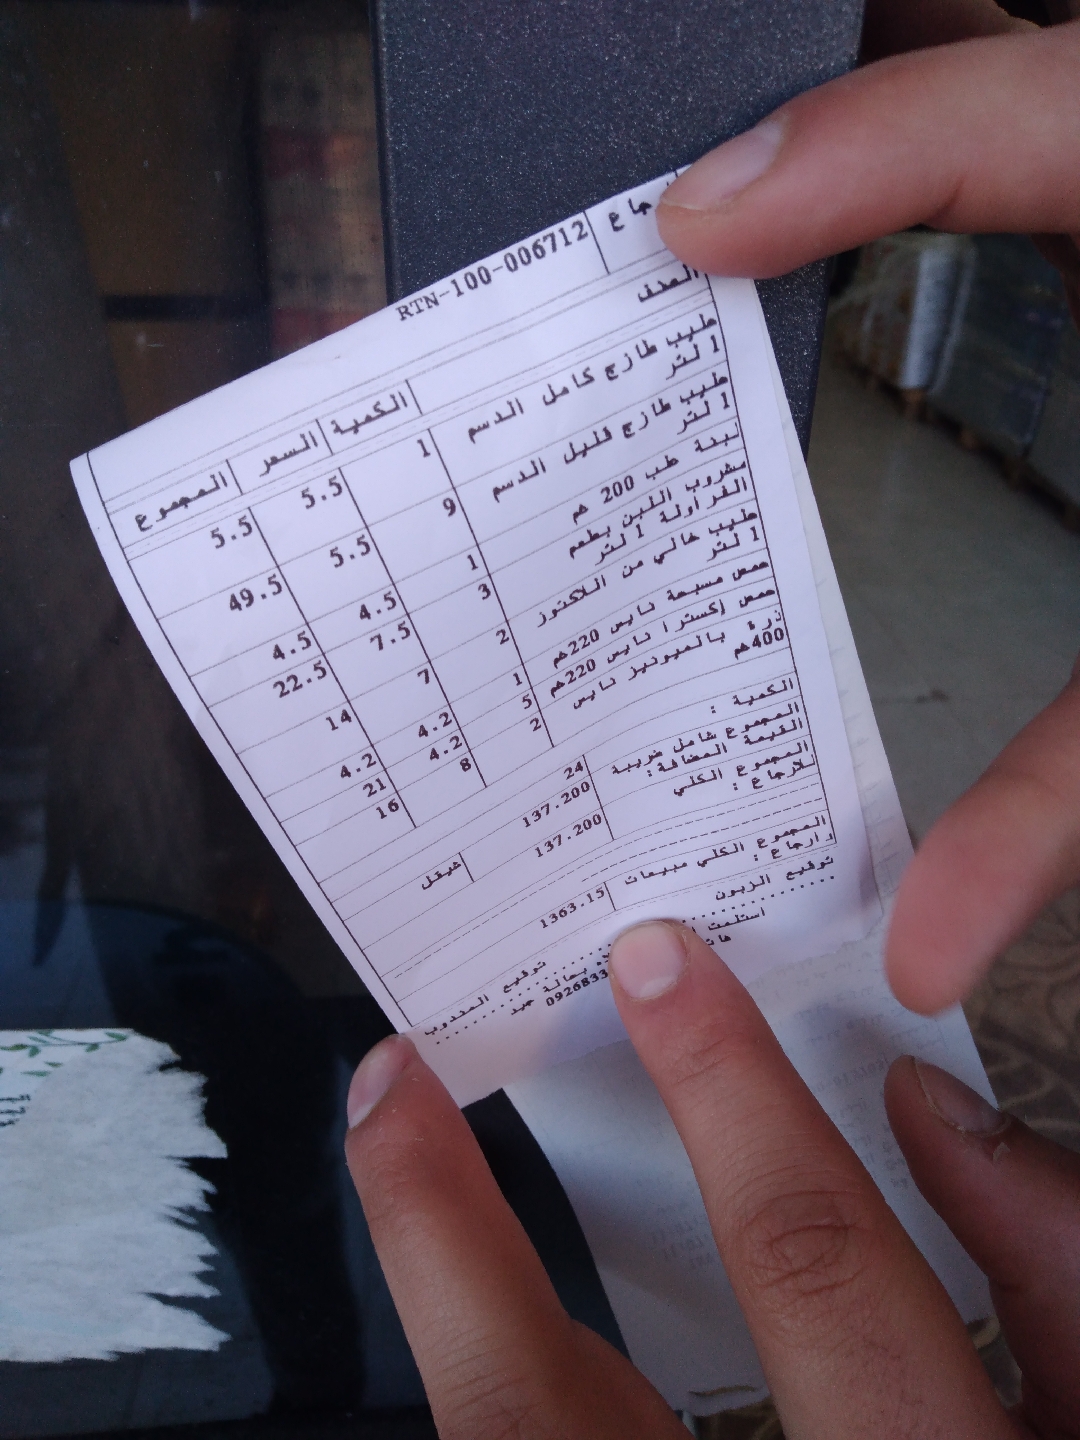 RTN-100-006712
الصنف الكمية السعر المجموع
حليب طازج كامل الدسم 1 5.5 5.5
1 لتر
حليب طازج قليل الدسم 9 5.5 49.5
1 لتر
لبنة طب 200 غم 1 4.5 4.5
مشروب اللبن بطعم 3 7.5 22.5
الفراولة 1 لتر
حليب خالي من اللاكتوز 2 7 14
1 لتر
حمص مسبحة نايس 220غم 1 4.2 4.2
حمص إكسترا نايس 220غم 5 4.2 21
ذرة بالميونيز نايس 2 8 16
400غم
الكمية : 24
المجموع شامل ضريبة 137.200
القيمة المضافة:
المجموع الكلي 137.200 شيقل
للارجاع :
المجموع الكلي مبيعات 1363.15
و ارجاع :
توقيع الزبون توقيع المندوب
استلمت بحالة جيد